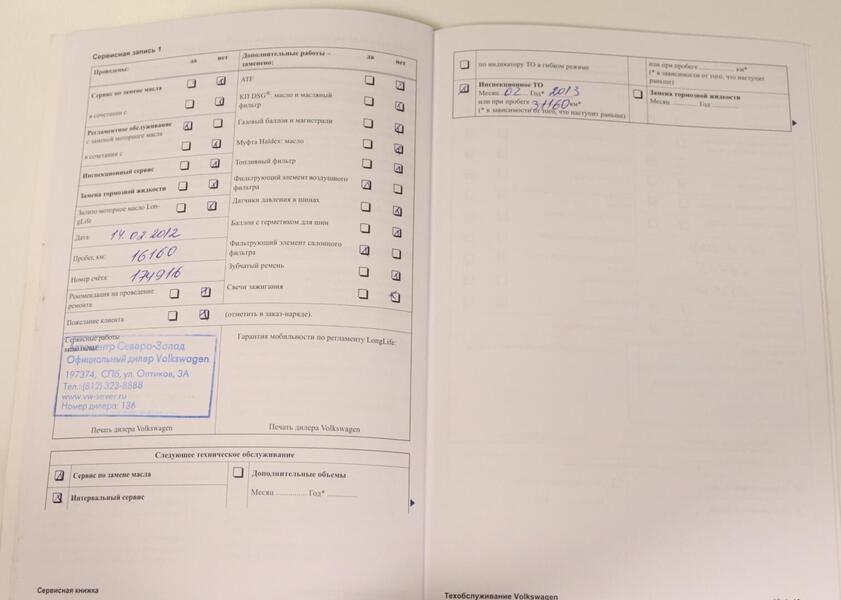 Сервисная запись 1
Проведены: да нет
Сервис по замене масла
в сочетании с
Регламентное обслуживание
с заменой моторного масла
в сочетании с
Инспекционный сервис
Замена тормозной жидкости
Залито моторное масло Lon-
gLife
Дата: 14.02 2012
Пробег, км: 16160
Номер счёта: 174916
Рекомендация на проведение
ремонта
Пожелание клиента
Дополнительные работы –
заменено: да нет
ATF
КП DSG®: масло и масляный
фильтр
Газовый баллон и магистрали
Муфта Haldex: масло
Топливный фильтр
Фильтрующий элемент воздушного
фильтра
Датчики давления в шинах
Баллон с герметиком для шин
Фильтрующий элемент салонного
фильтра
Зубчатый ремень
Свечи зажигания
(отметить в заказ-наряде).
Сервисные работы
Автоцентр Северо-Запад
Официальный дилер Volkswagen
197374, СПб, ул. Оптиков, 3А
Тел.: (812) 323-8888
www.vw-sever.ru
Номер дилера: 136
Печать дилера Volkswagen
Гарантия мобильности по регламенту LongLife:
Печать дилера Volkswagen
Следующее техническое обслуживание
Сервис по замене масла
Интервальный сервис
Дополнительные объемы
Месяц ............. Год* ............
Сервисная книжка
по индикатору ТО в гибком режиме
или при пробеге ............ км*
(* в зависимости от того, что наступит
раньше)
Инспекционное ТО
Месяц 02 Год* 2013
или при пробеге 31160 км*
(* в зависимости от того, что наступит раньше)
Замена тормозной жидкости
Месяц .......... Год ..........
Техобслуживание Volkswagen